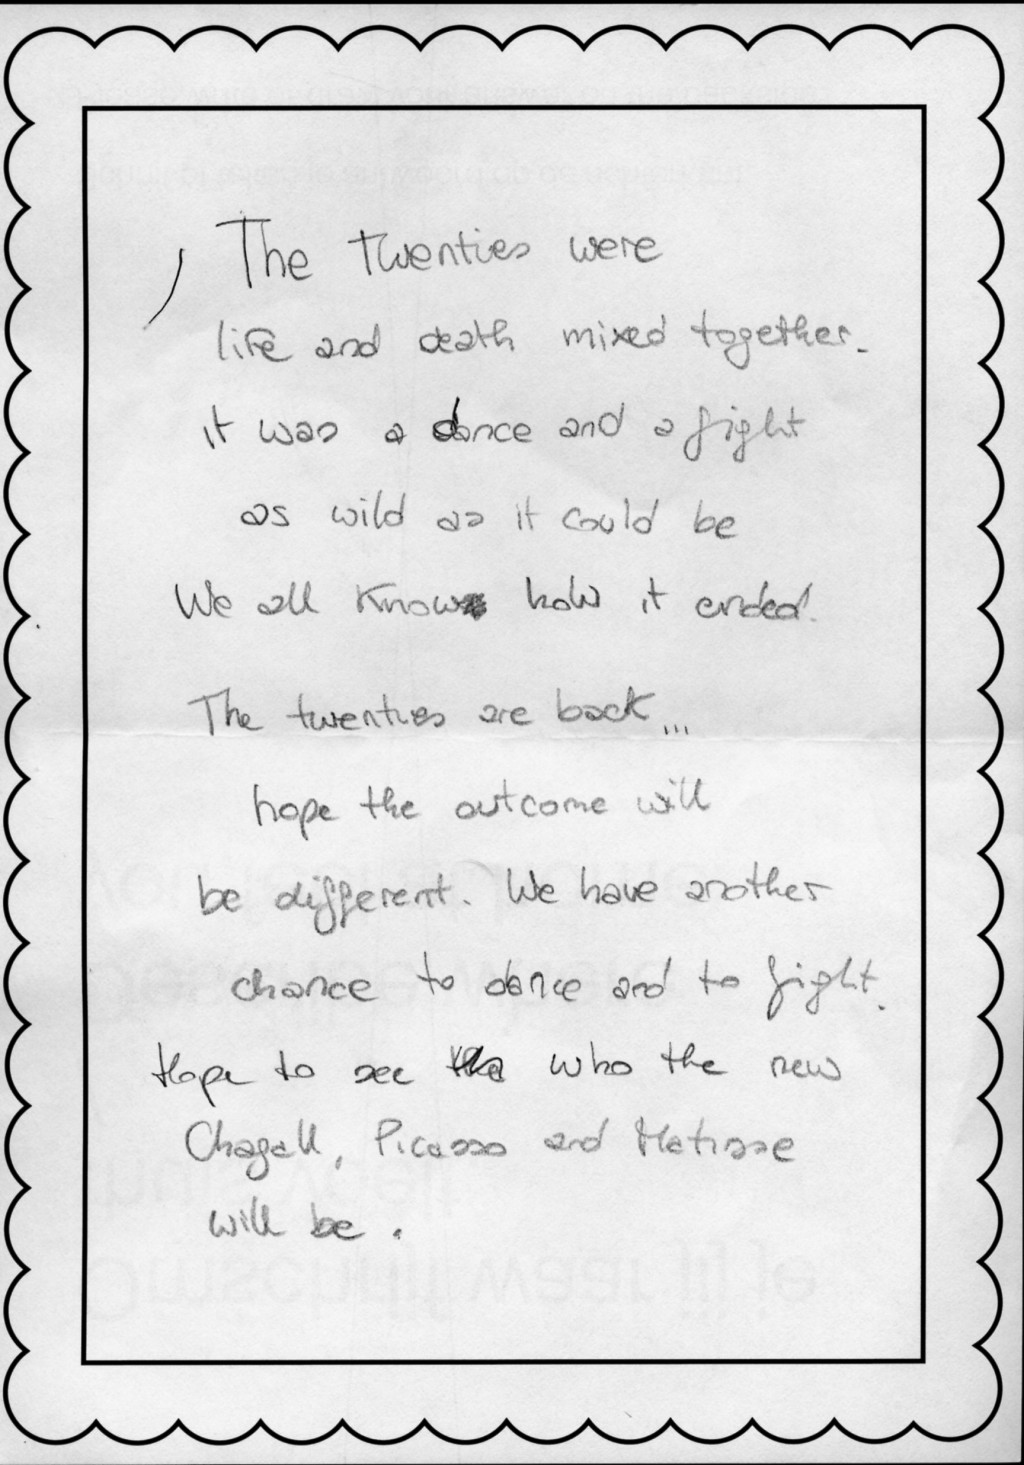 The Twenties were
life and death mixed together.
it was a dance and a fight
as wild as it could be
We all know how it ended.
The twenties are back...
hope the outcome will
be different. We have another
chance to dance and to fight.
Hope to see who the new
Chagall, Picasso and Matisse
will be.